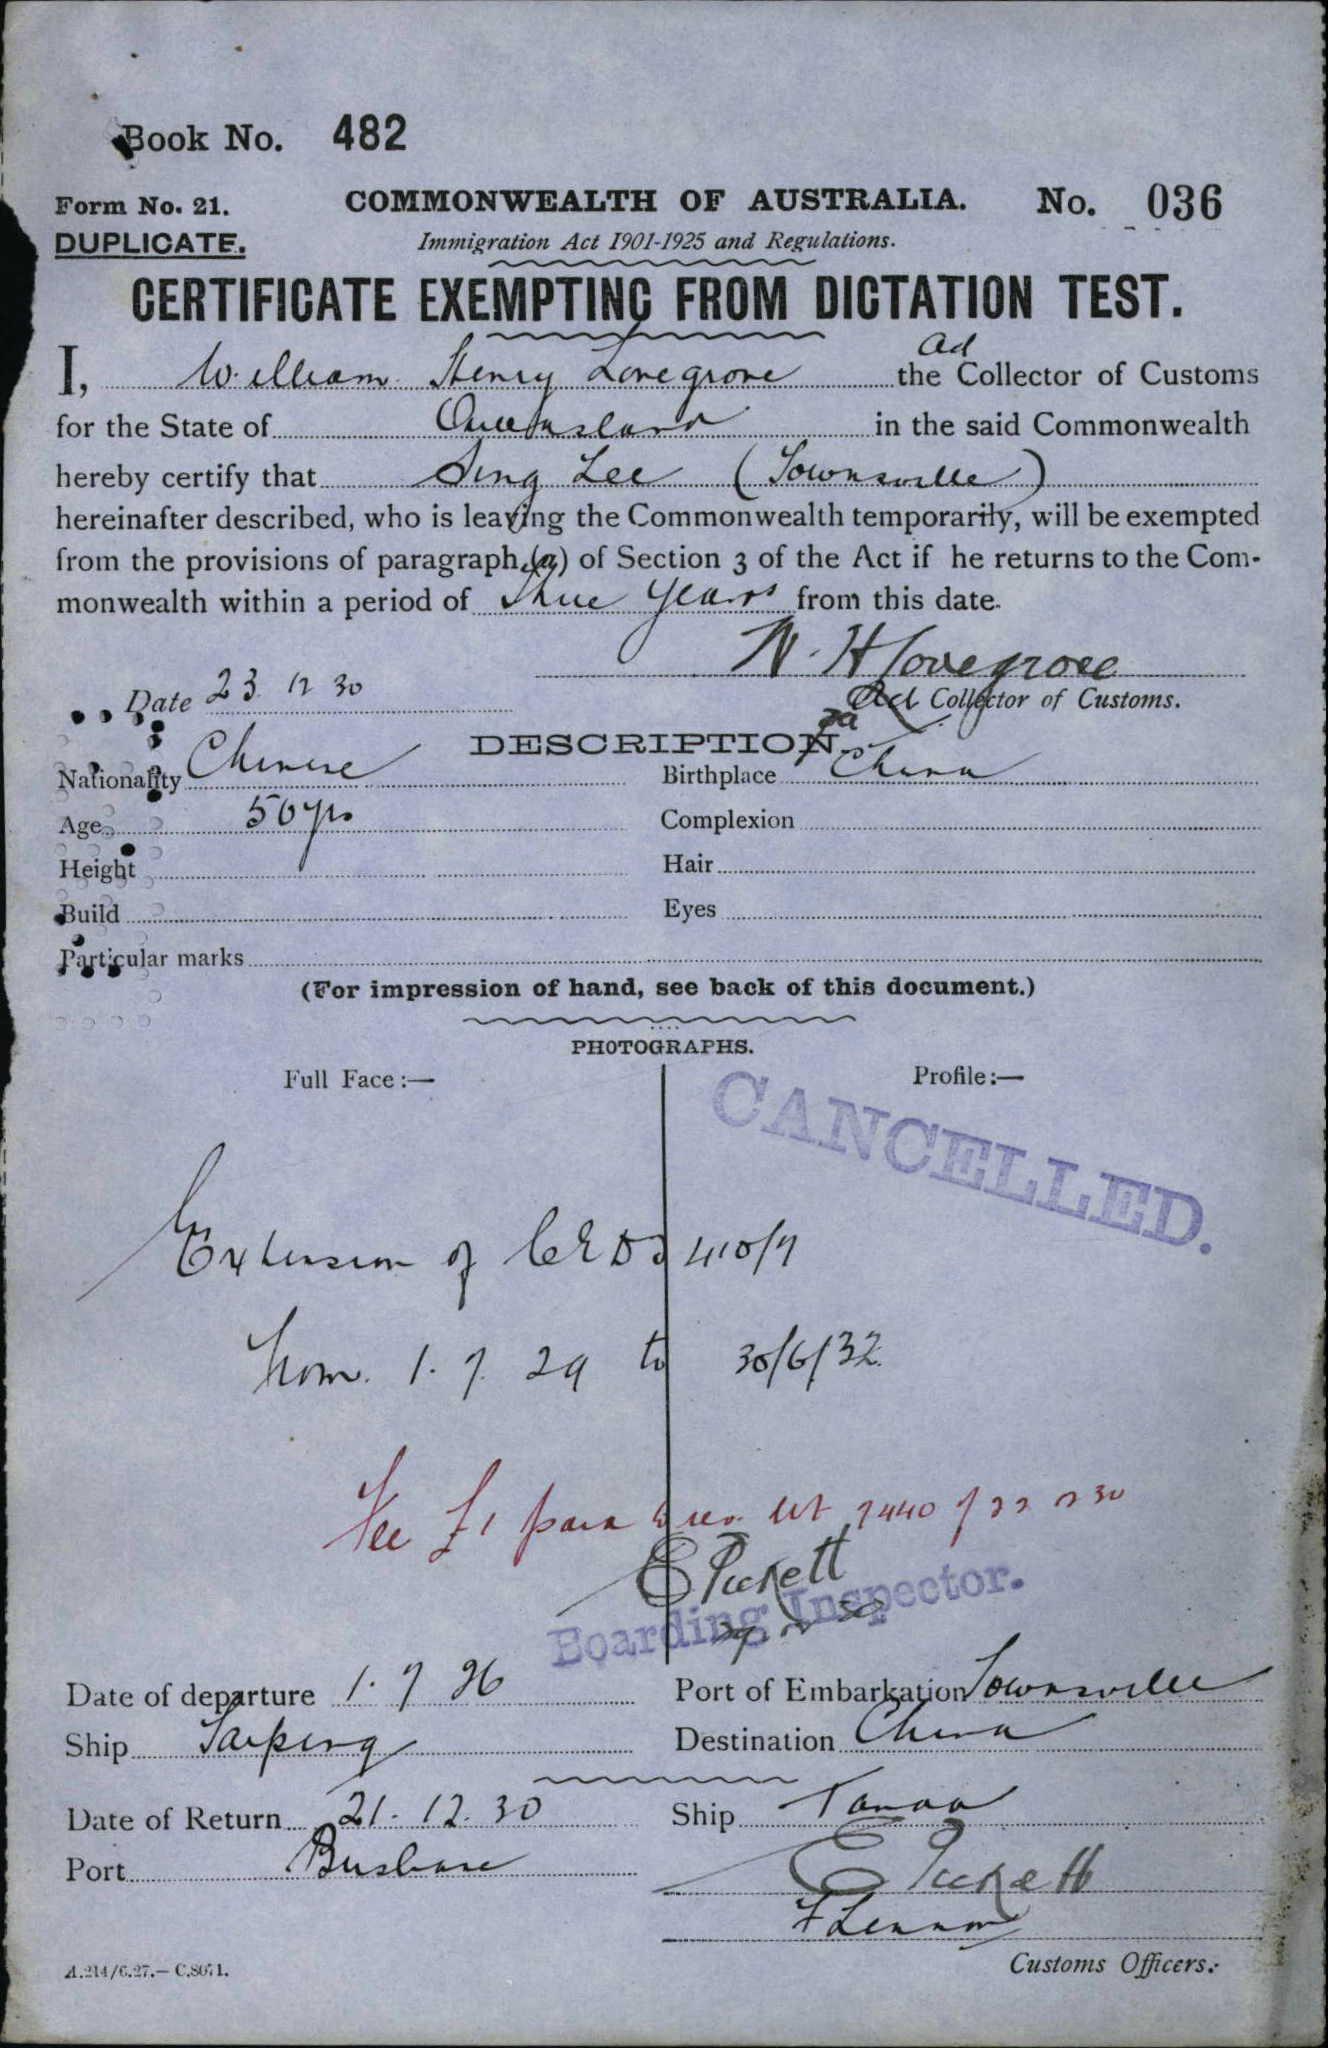 Book No. 482
Form No. 21. COMMONWEALTH OF AUSTRALIA. No. 036
DUPLICATE. Immigration Act 1901-1925 and Regulations.
CERTIFICATE EXEMPTING FROM DICTATION TEST.
I, William Henry Lovegrove the Collector of Customs
for the State of Queensland in the said Commonwealth
hereby certify that Sing Lee (Townsville)
hereinafter described, who is leaving the Commonwealth temporarily, will be exempted
from the provisions of paragraph (a) of Section 3 of the Act if he returns to the Com-
monwealth within a period of Three years from this date.
W. H Lovegrove
Date 23 12 30
Collector of Customs.
DESCRIPTION.
Nationality Chinese Birthplace China
Age 50 yrs Complexion
Height Hair
Build Eyes
Particular marks
(For impression of hand, see back of this document.)
PHOTOGRAPHS.
Full Face:— Profile:—
CANCELLED.
Extension of CEDT 410/7
from 1. 7. 29 to 30/6/32
Fee £1 7440 of 22 12 30
E Pickett
Boarding Inspector.
Date of departure 1. 7 26 Port of Embarkation Townsville
Ship Taiping Destination China
Date of Return 21. 12. 30 Ship Tanda
Port Brisbane
E Pickett
F Lennon
Customs Officers.
A.214/6.27.—C.8071.